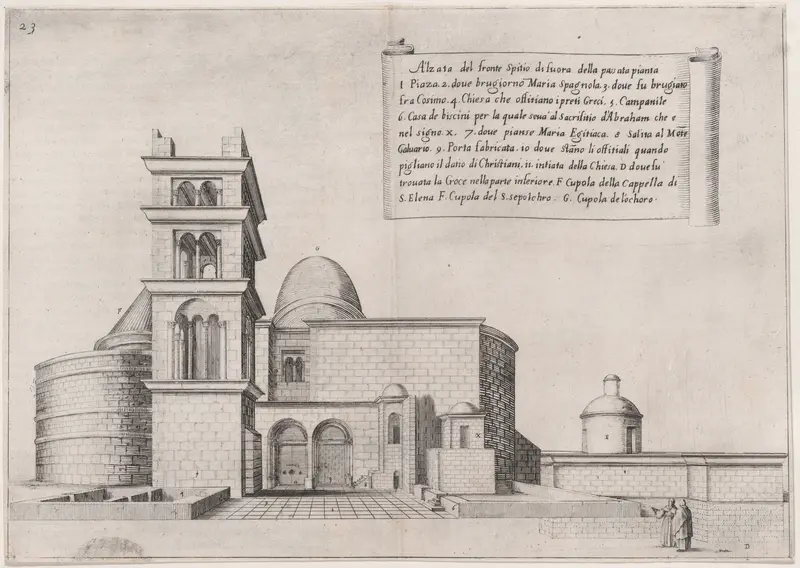 23
Alzata del fronte Spitio di fuora della passata pianta
1 Piaza. 2. doue brugiorno Maria Spagnola. 3. doue fu brugiato
fra Cosimo. 4. Chiesa che offitiano i preti Greci. 5. Campanile
6. Casa de biscini per la quale seua al Sacrifitio d'Abraham che e
nel signo. x. 7. doue pianse Maria Egitiaca. 8 Salita al Mōte
Caluario. 9. Porta fabricata. 10 doue stāno li offitiali quando
pigliano il datio di Christiani, 11. intrata della Chiesa. D doue fu
trouata la Croce nella parte inferiore. F Cupola della Cappella di
S. Elena F. Cupola del S. sepolchro. G. Cupola de lo choro.
G
F
X
D